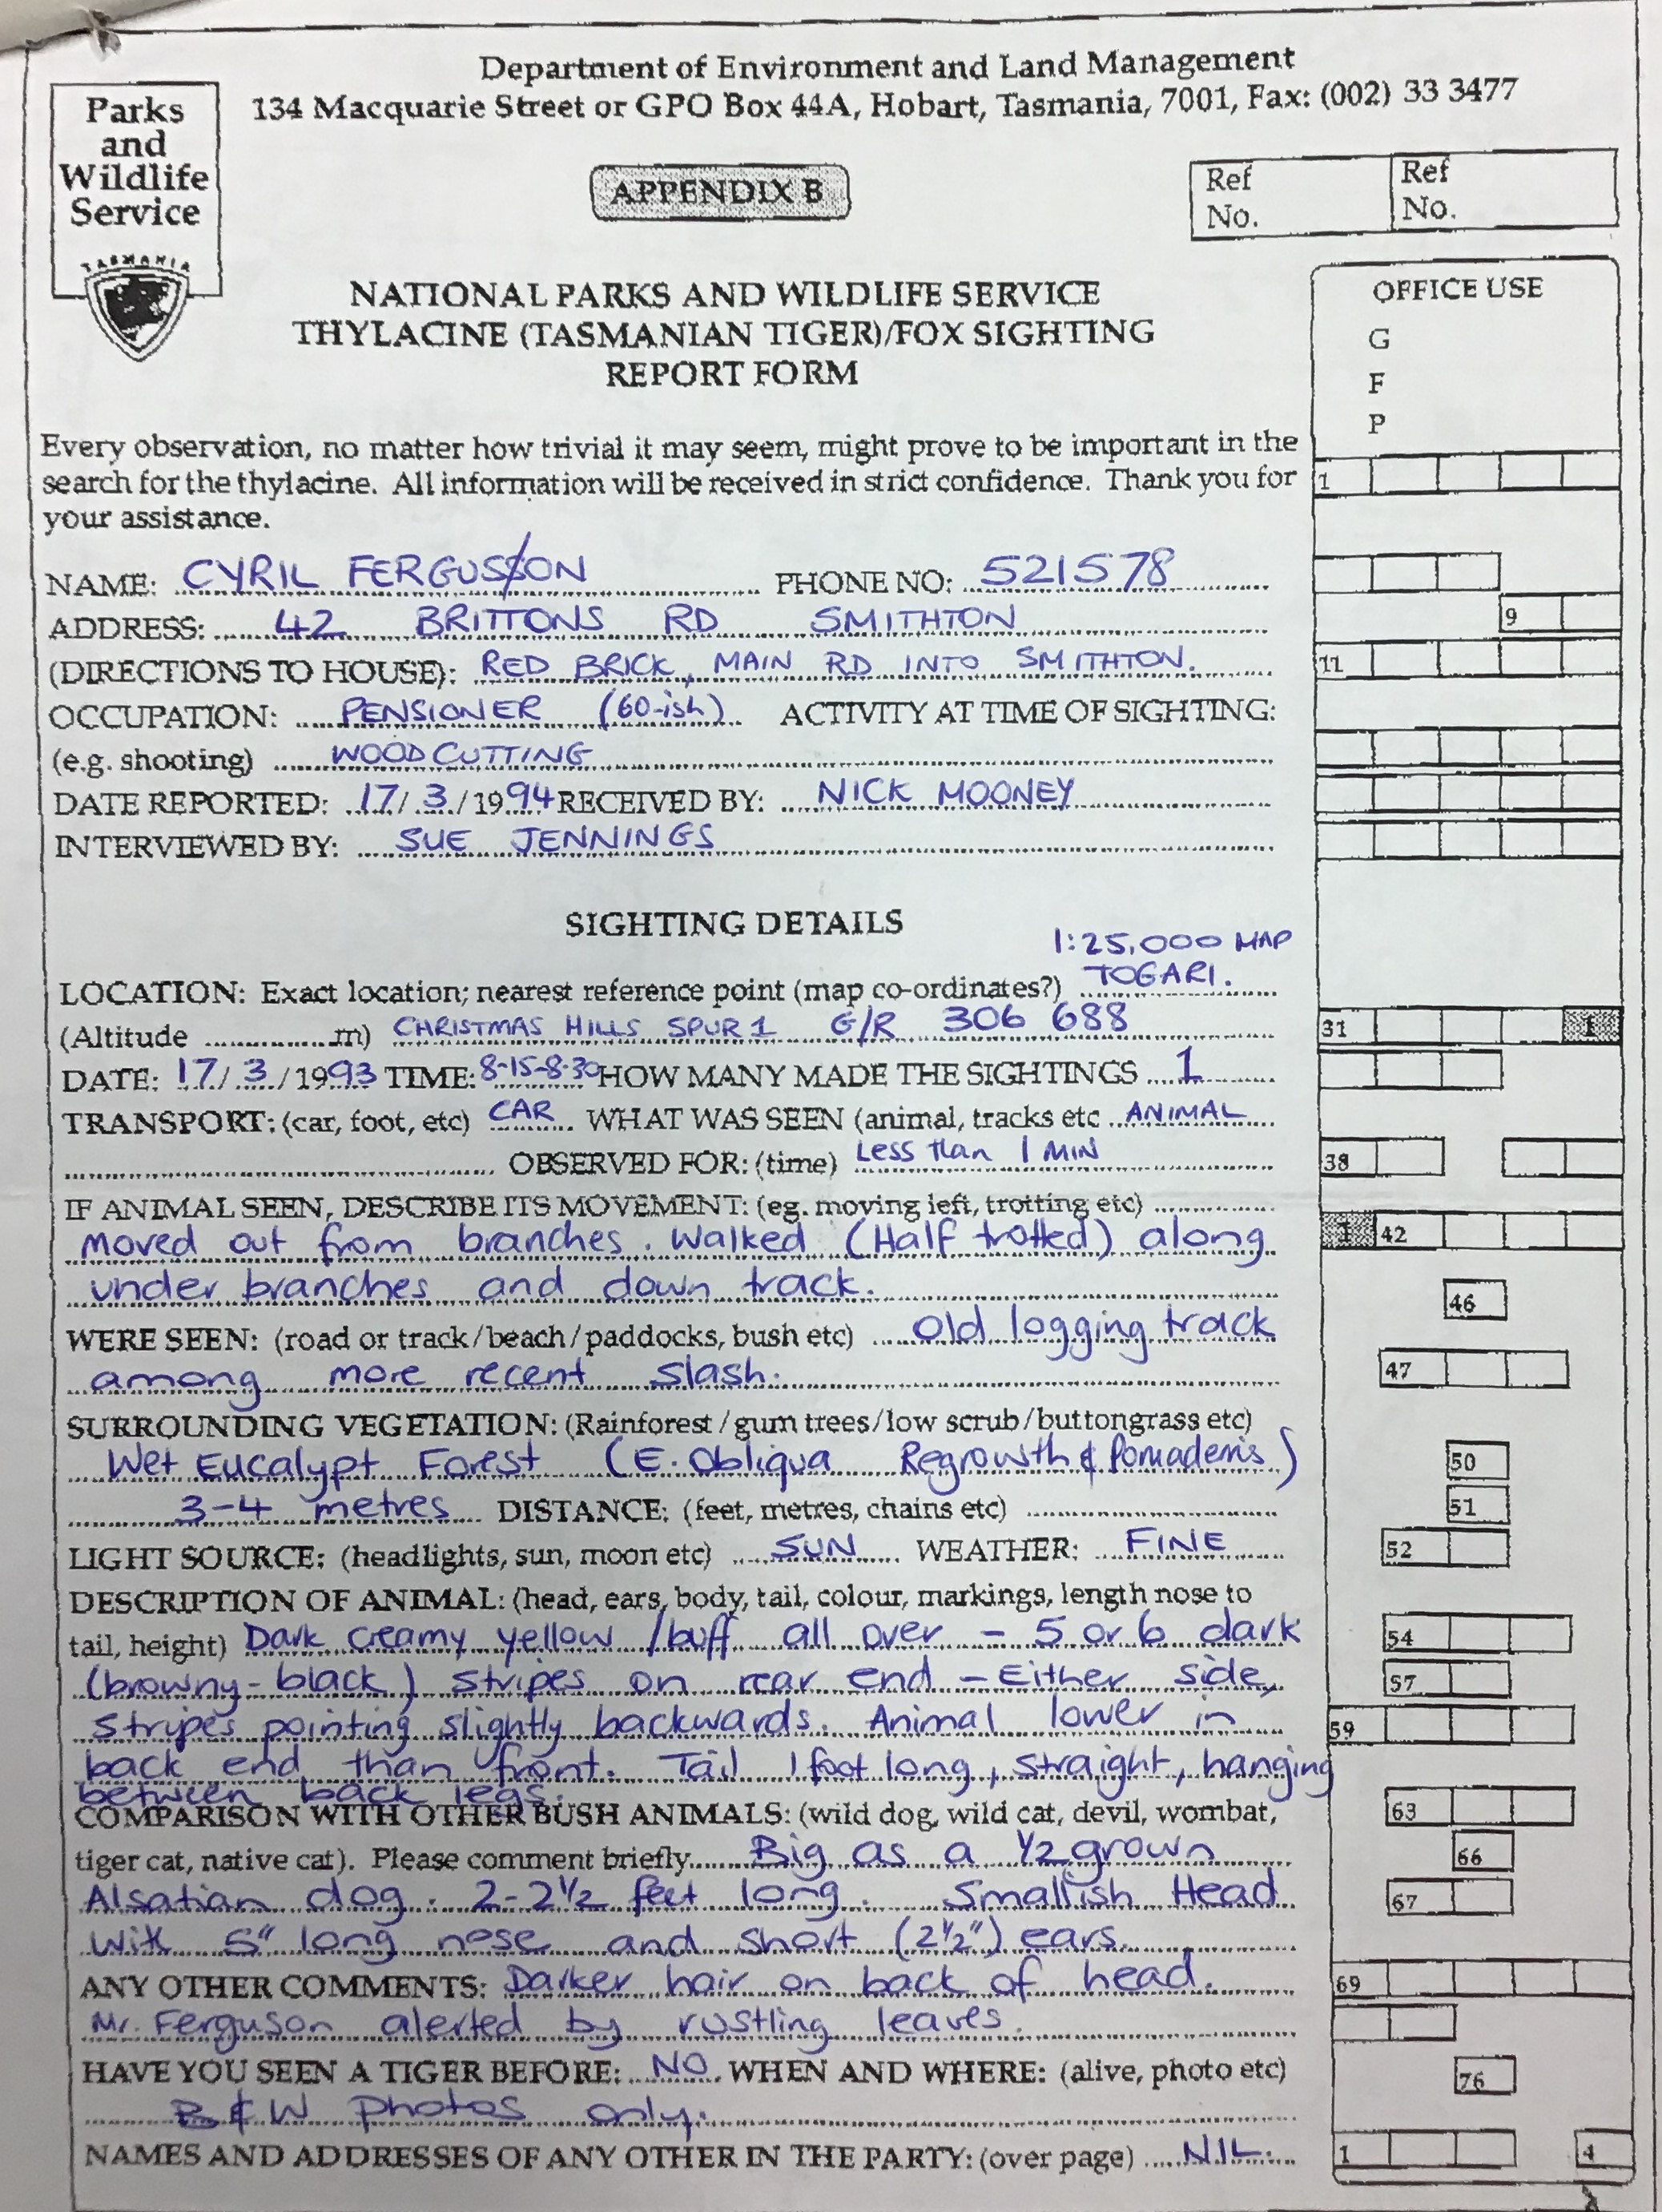 Department of Environment and Land Management
134 Macquarie Street or GPO Box 44A, Hobart, Tasmania, 7001, Fax: (002) 33 3477
Parks
and
Wildlife
Service
TASMANIA
APPENDIX B
Ref No.
Ref No.
NATIONAL PARKS AND WILDLIFE SERVICE
THYLACINE (TASMANIAN TIGER)/FOX SIGHTING
REPORT FORM
OFFICE USE
G
F
P
Every observation, no matter how trivial it may seem, might prove to be important in the
search for the thylacine. All information will be received in strict confidence. Thank you for
your assistance.
1
NAME: CYRIL FERGUSSON PHONE NO: 521578
ADDRESS: 42 BRITTONS RD SMITHTON
9
(DIRECTIONS TO HOUSE): RED BRICK, MAIN RD INTO SMITHTON.
11
OCCUPATION: PENSIONER (60-ish) ACTIVITY AT TIME OF SIGHTING:
(e.g. shooting) WOODCUTTING
DATE REPORTED: 17/3/1994 RECEIVED BY: NICK MOONEY
INTERVIEWED BY: SUE JENNINGS
SIGHTING DETAILS
1:25,000 MAP
LOCATION: Exact location; nearest reference point (map co-ordinates?) TOGARI.
(Altitude ..............m) CHRISTMAS HILLS SPUR 1 G/R 306 688
31 1
DATE: 17/3/1993 TIME: 8-15-8-30 HOW MANY MADE THE SIGHTINGS 1
TRANSPORT: (car, foot, etc) CAR WHAT WAS SEEN (animal, tracks etc ANIMAL
OBSERVED FOR: (time) Less than 1 MIN
38
IF ANIMAL SEEN, DESCRIBE ITS MOVEMENT: (eg. moving left, trotting etc)
Moved out from branches. Walked (Half trotted) along
1 42
under branches and down track.
46
WERE SEEN: (road or track/beach/paddocks, bush etc) Old logging track
among more recent slash.
47
SURROUNDING VEGETATION: (Rainforest/gum trees/low scrub/buttongrass etc)
Wet Eucalypt Forest (E. Obliqua Regrowth & Pomaderris)
50
3-4 metres DISTANCE: (feet, metres, chains etc)
51
LIGHT SOURCE: (headlights, sun, moon etc) SUN WEATHER: FINE
52
DESCRIPTION OF ANIMAL: (head, ears, body, tail, colour, markings, length nose to
tail, height) Dark creamy yellow/buff all over - 5 or 6 dark
54
(browny-black) stripes on rear end - Either side,
57
stripes pointing slightly backwards. Animal lower in
59
back end than front. Tail 1 foot long, straight, hanging
between back legs.
COMPARISON WITH OTHER BUSH ANIMALS: (wild dog, wild cat, devil, wombat,
63
tiger cat, native cat). Please comment briefly Big as a 1/2 grown
66
Alsatian dog. 2-2 1/2 feet long. Smallish Head
67
with 5" long nose and short (2 1/2") ears.
ANY OTHER COMMENTS: Darker hair on back of head.
69
Mr. Ferguson alerted by rustling leaves.
HAVE YOU SEEN A TIGER BEFORE: NO. WHEN AND WHERE: (alive, photo etc)
76
B & W Photos only.
NAMES AND ADDRESSES OF ANY OTHER IN THE PARTY: (over page) NIL.
1 4